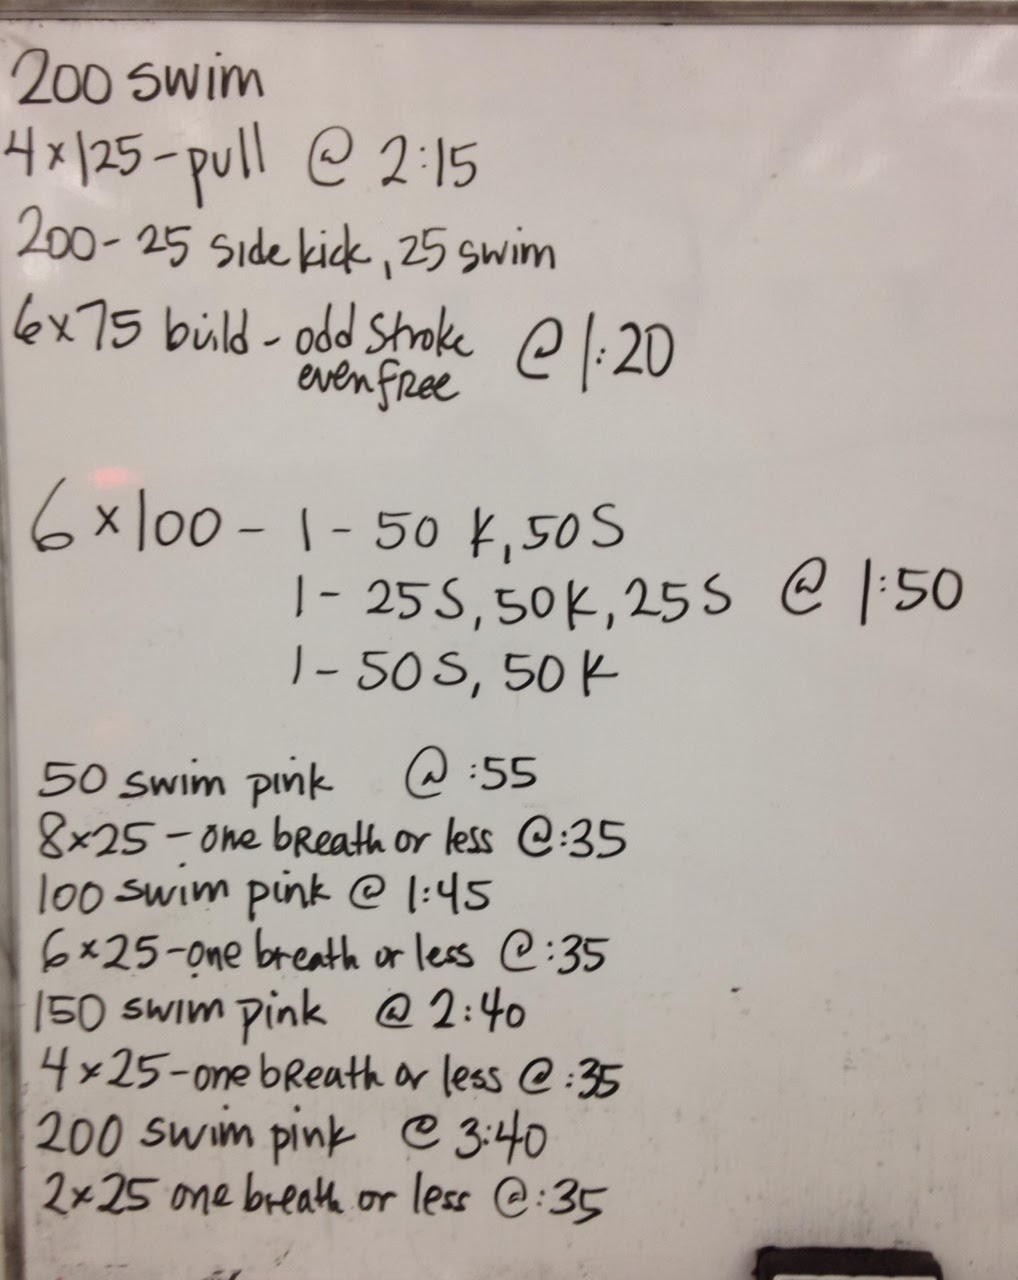 200 swim
4x125-pull @ 2:15
200-25 side kick, 25 swim
6x75 build - odd stroke @ 1:20
even free
6x100 - 1 - 50 K, 50 S
1 - 25 S, 50 K, 25 S @ 1:50
1 - 50 S, 50 K
50 swim pink @ :55
8x25 - one breath or less @ :35
100 swim pink @ 1:45
6x25-one breath or less @ :35
150 swim pink @ 2:40
4x25-one breath or less @ :35
200 swim pink @ 3:40
2x25 one breath or less @ :35